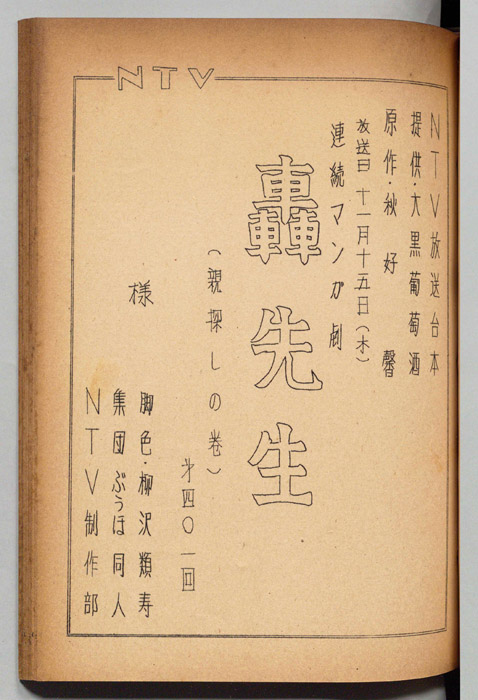 NTV
NTV放送台本
提供・大黒葡萄酒
原作・秋好馨
放送日 十一月十五日(木)
連続マンガ劇
轟先生
(親探しの巻)
才四〇一回
様
脚色・柳沢類寿
集団ぶうほ同人
NTV制作部